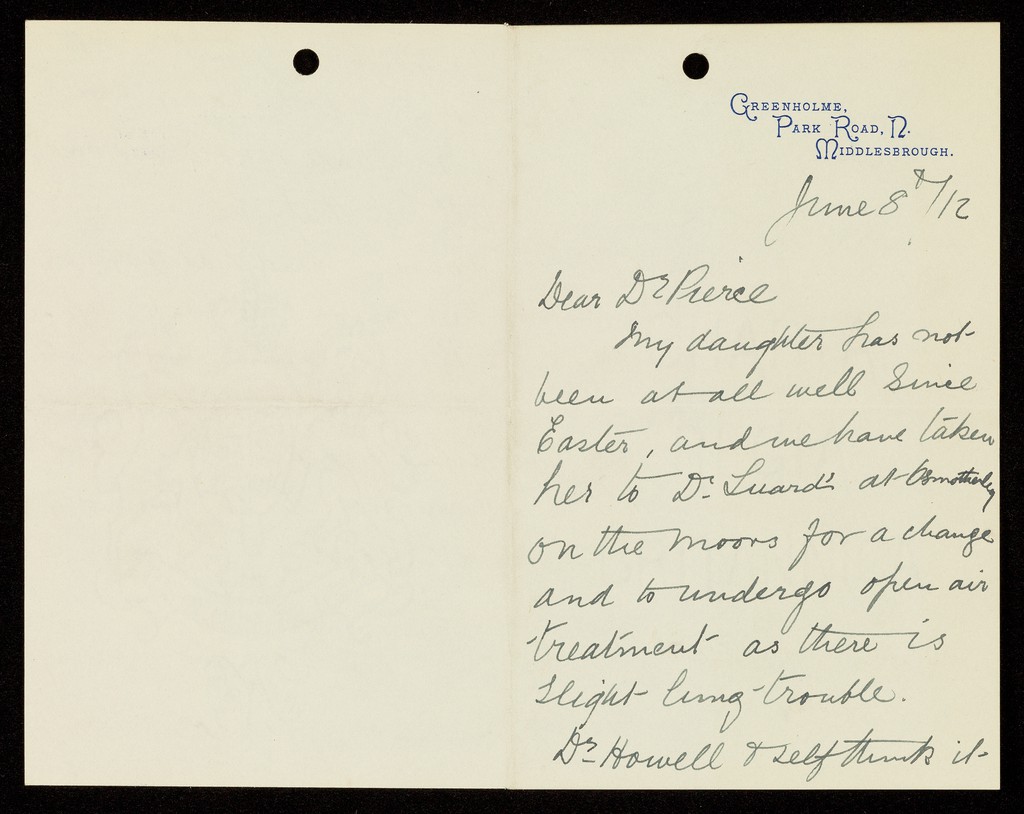 Greenholme,
Park Road, N.
Middlesbrough.
June 8th/12
Dear Dr Pierce
My daughter has not
been at all well since
Easter, and we have taken
her to Dr. Luard's at Osmotherley
on the moors for a change
and to undergo open air
treatment as there is
slight lung trouble.
Dr. Howell & self think it